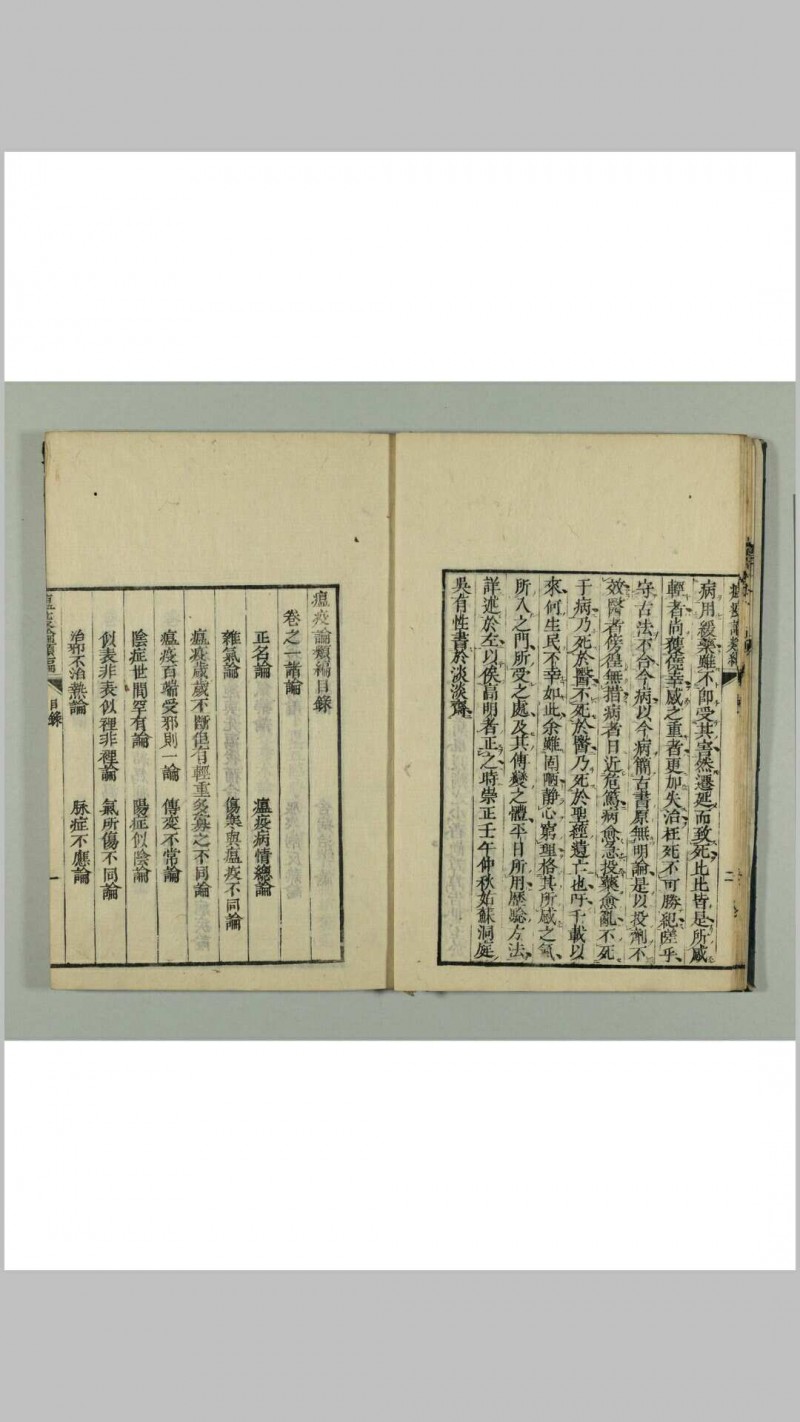 病用緩藥雖不即受其害然遷延而致死比比皆是所感
輕者尚獲僥幸感之重者更加失治枉死不可勝紀嗟乎
守古法不合今病以今病簡古書原無明論是以投劑不
效醫者傍徨無措病者日近危篤病愈急投藥愈亂不死
于病乃死於醫不死於醫乃死於聖經遺亡也吁千載以
來何生民不幸如此余雖固陋靜心窮理格其所感之氣
所入之門所受之處及其傳變之體平日所用歷驗方法
詳述於左以俟高明者正之時崇正壬午仲秋姑蘇洞庭
吳有性書於淡淡齋
瘟疫論類編目錄
卷之一諸論
正名論 瘟疫病情總論
雜氣論 傷寒與瘟疫不同論
瘟疫歲歲不斷但有輕重多寡之不同論
瘟疫百端受邪則一論 傳变不常論
陰症世間罕有論 陽症似陰論
似表非表似裡非裡論 氣所傷不同論
治邪不治熱論 脉症不應論
瘟疫論類編 目錄 一